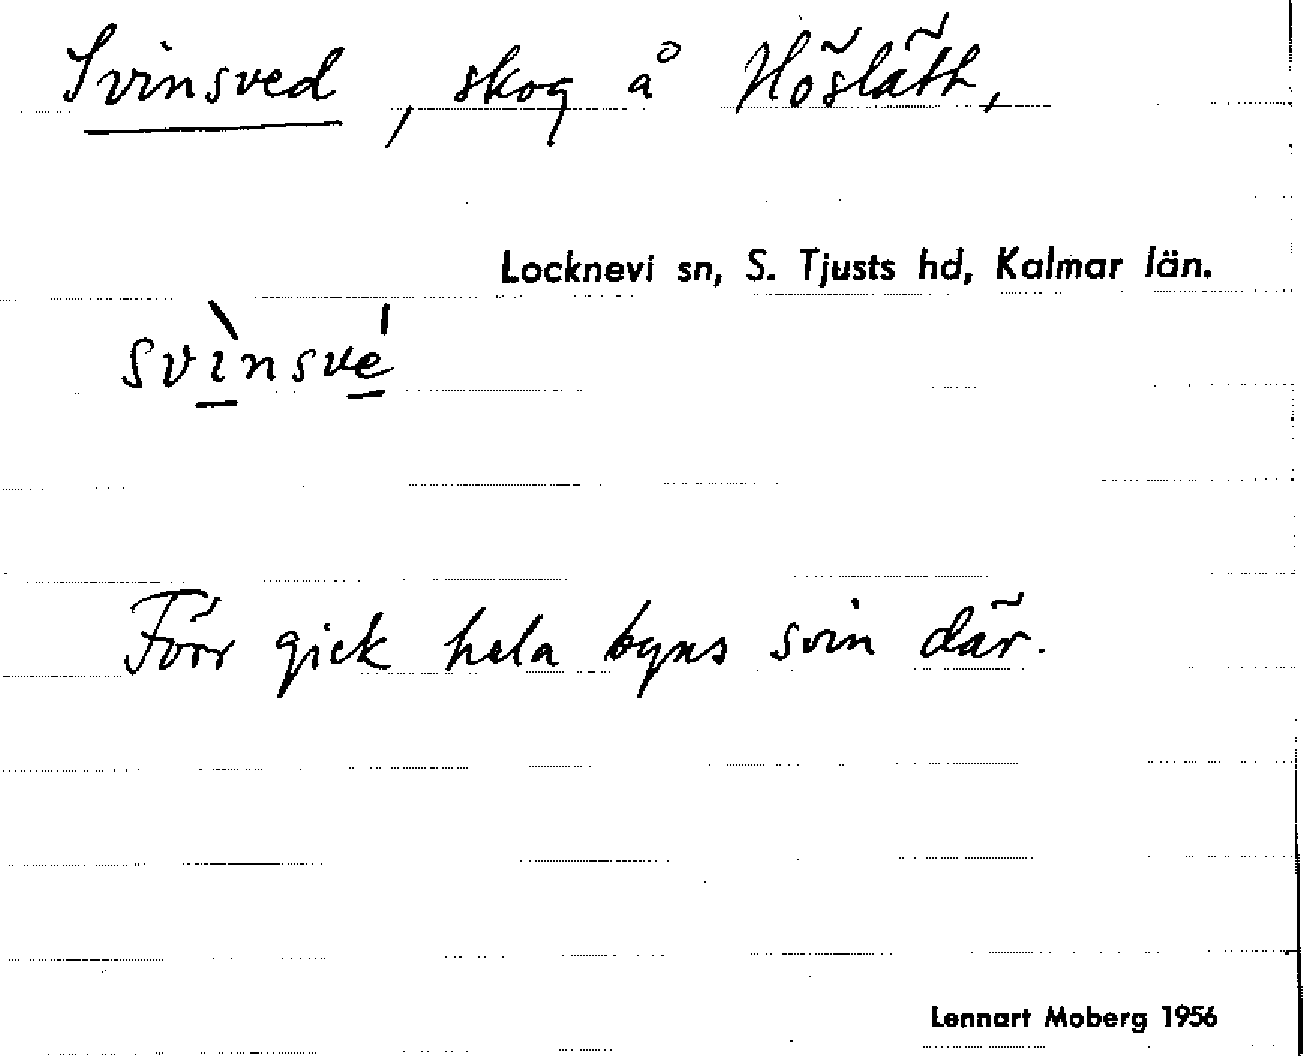 Svinsved, skog å Hösläth,
Locknevi sn, S. Tjusts hd, Kalmar län.
svìnsvé
Förr gick hela byns svin där.
Lennart Moberg 1956